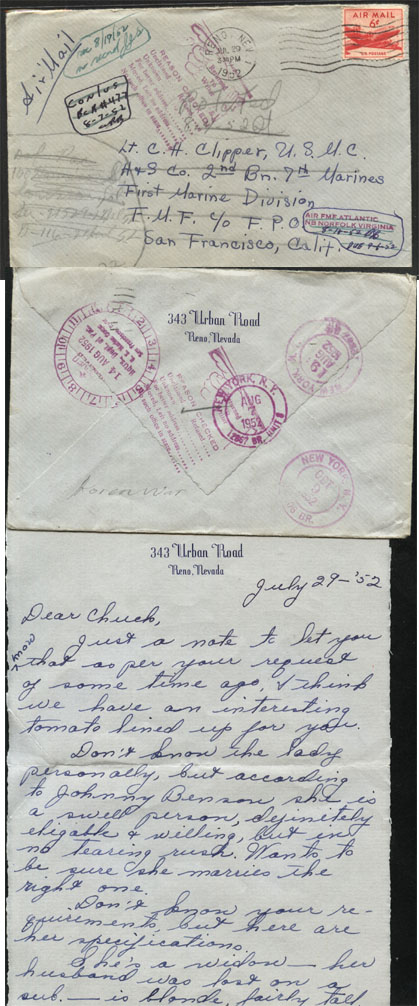 Air Mail
rec 8/19/52
AIR MAIL
6¢
U.S. POSTAGE
RENO, NEV.
JUL 29
1952
REASON CHECKED
CONUS
8-20-52
Lt. C. H. Clipper, U.S.M.C.
H&S Co. 2nd Bn. 7th Marines
First Marine Division
F.M.F. c/o F.P.O.
San Francisco, Calif.
AIR FMF ATLANTIC
NB NORFOLK VIRGINIA
343 Urban Road
Reno, Nevada
14 AUG 1952
REASON CHECKED
NEW YORK, N.Y.
AUG
1952
NEW YORK, N.Y.
AUG
1952
NEW YORK, N.Y.
Korea War
343 Urban Road
Reno, Nevada
July 29-'52
Dear Chuck,
Just a note to let you
know that as per your request
of some time ago, I think
we have an interesting
tomato lined up for you.
Don't know the lady
personally, but according
to Johnny Benson she is
a swell person, definitely
eligable & willing, but in
no tearing rush. Wants to
be sure she marries the
right one.
Don't know your re-
quirements, but here are
her specifications.
She's a widow - her
husband was lost on a
sub. - is blonde, fairly tall